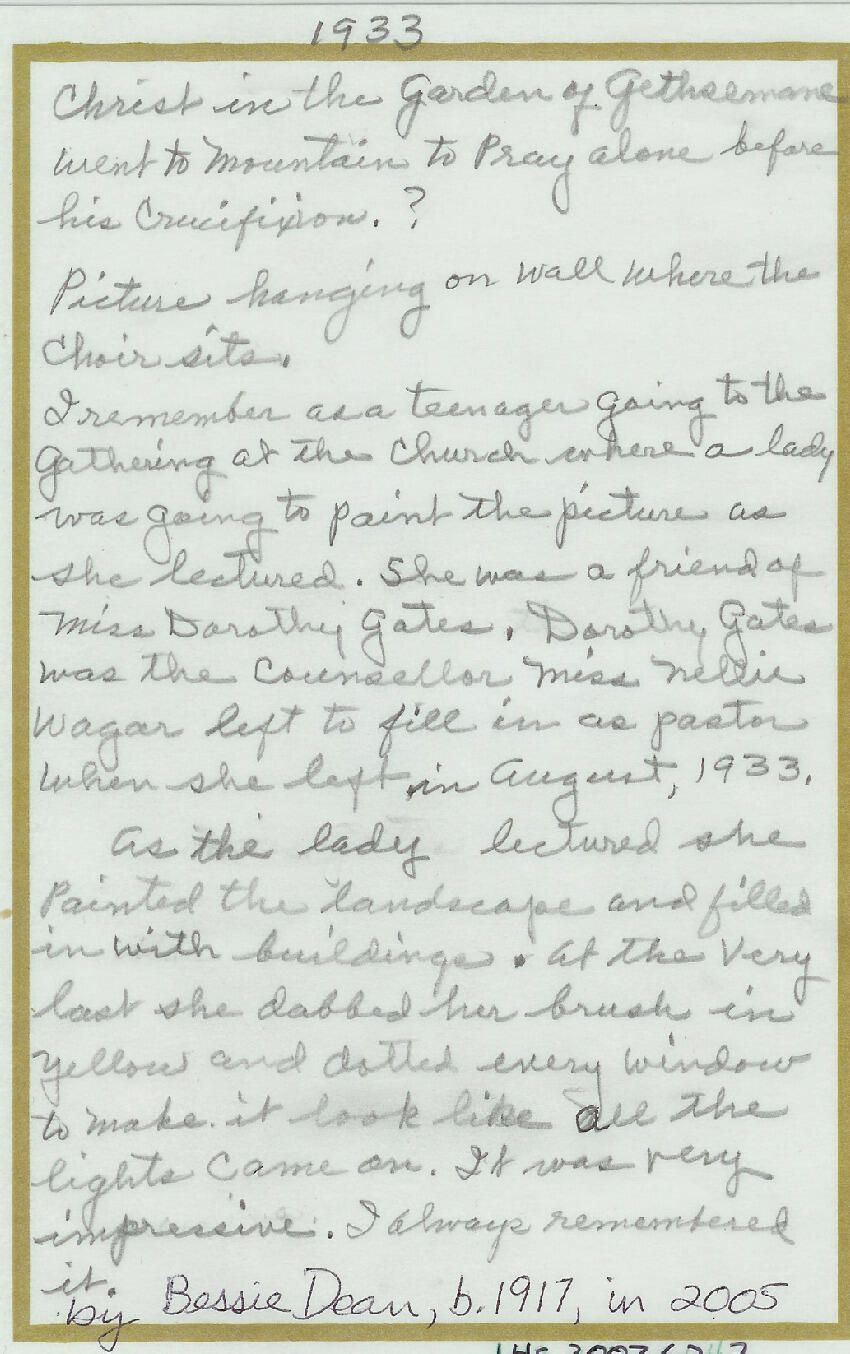 1933
Christ in the Garden of Gethsemane
went to Mountain to Pray alone before
his Crucifixion. ?
Picture hanging on wall where the
Choir sits.
I remember as a teenager going to the
Gathering at the Church where a lady
was going to paint the picture as
she lectured. She was a friend of
Miss Dorothy Gates. Dorothy Gates
was the Counsellor Miss Nellie
Wagar left to fill in as pastor
when she left in August, 1933.
As the lady lectured she
Painted the landscape and filled
in with buildings. At the Very
last she dabbed her brush in
Yellow and dotted every window
to make it look like all the
lights Came on. It was very
impressive. I always remembered
it.
by Bessie Dean, b. 1917, in 2005